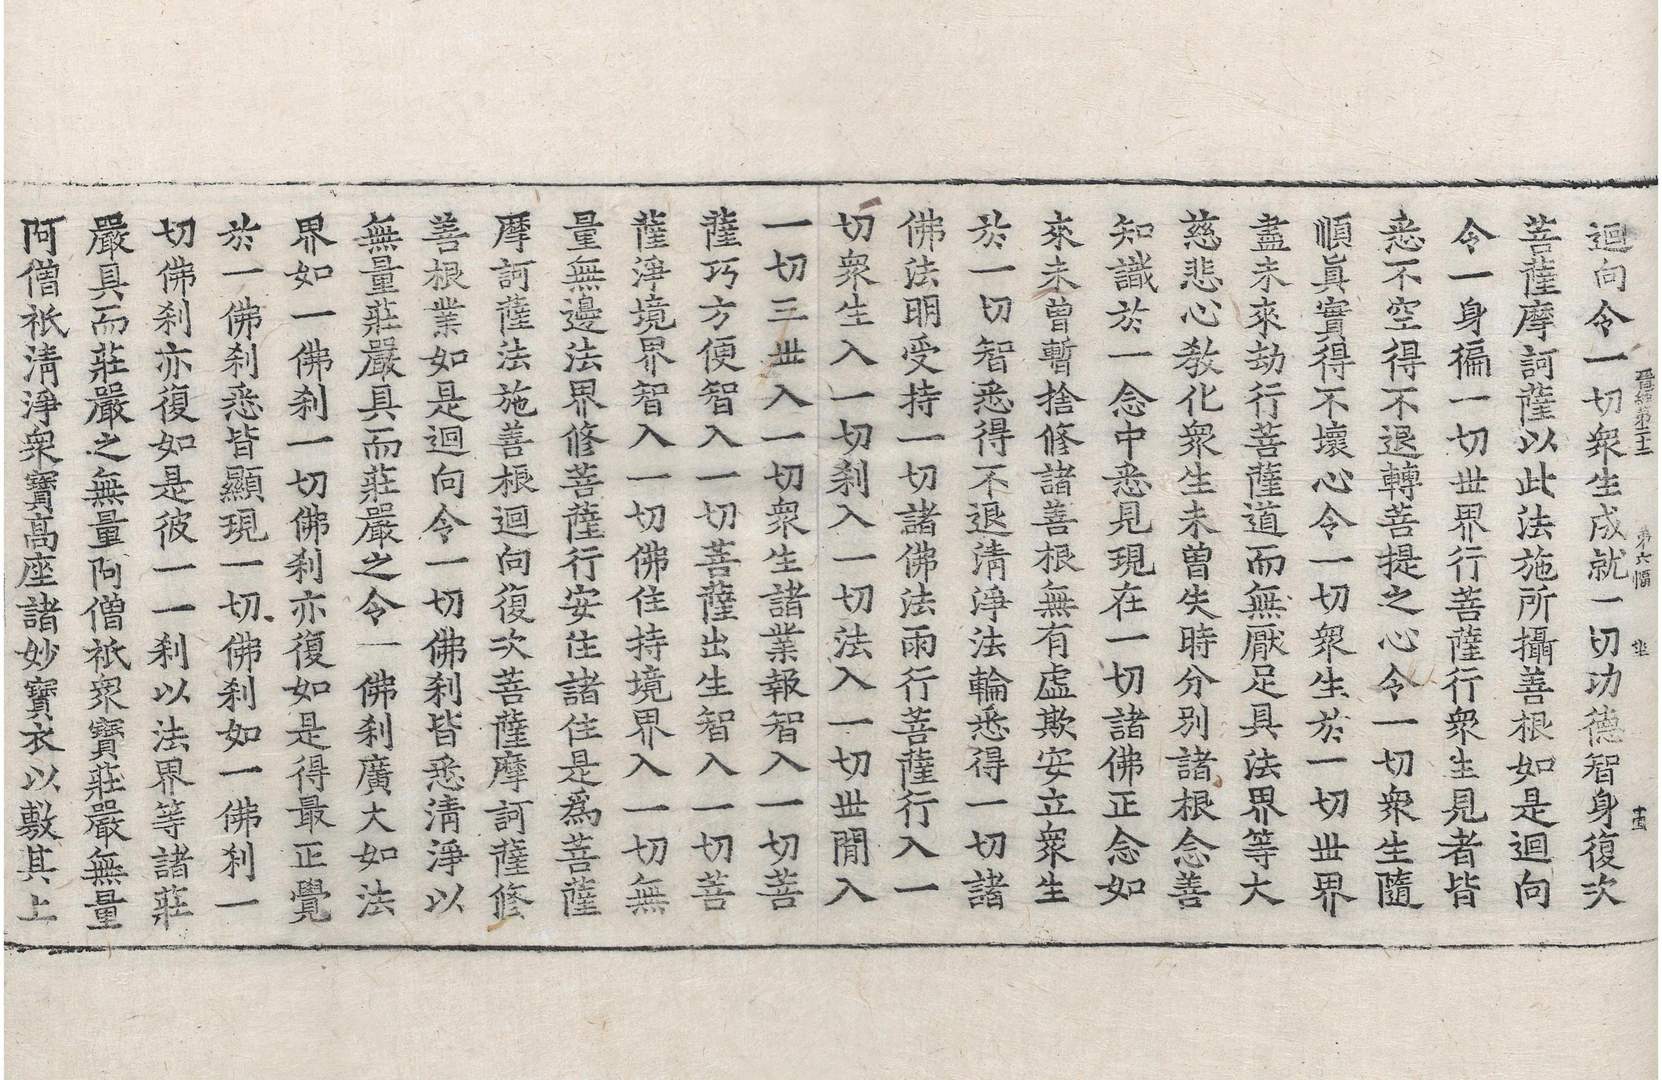 晉經第二十二　第六幅　坐　十四
迴向令一切衆生成就一切功德智身復次
菩薩摩訶薩以此法施所攝善根如是迴向
令一身徧一切世界行菩薩行衆生見者皆
悉不空得不退轉菩提之心令一切衆生隨
順眞實得不壞心令一切衆生於一切世界
盡未來劫行菩薩道而無厭足具法界等大
慈悲心教化衆生未曾失時分别諸根念善
知識於一念中悉見現在一切諸佛正念如
來未曾暫捨修諸善根無有虛欺安立衆生
於一切智悉得不退清淨法輪悉得一切諸
佛法明受持一切諸佛法雨行菩薩行入一
切衆生入一切刹入一切法入一切世閒入
一切三世入一切衆生諸業報智入一切菩
薩巧方便智入一切菩薩出生智入一切菩
薩淨境界智入一切佛住持境界入一切無
量無邊法界修菩薩行安住諸住是爲菩薩
摩訶薩法施善根迴向復次菩薩摩訶薩修
善根業如是迴向令一切佛刹皆悉清淨以
無量莊嚴具而莊嚴之令一佛刹廣大如法
界如一佛刹一切佛刹亦復如是得最正覺
於一佛刹悉皆顯現一切佛刹如一佛刹一
切佛刹亦復如是彼一一刹以法界等諸莊
嚴具而莊嚴之無量阿僧祇衆寶莊嚴無量
阿僧祇清淨衆寶高座諸妙寶衣以敷其上